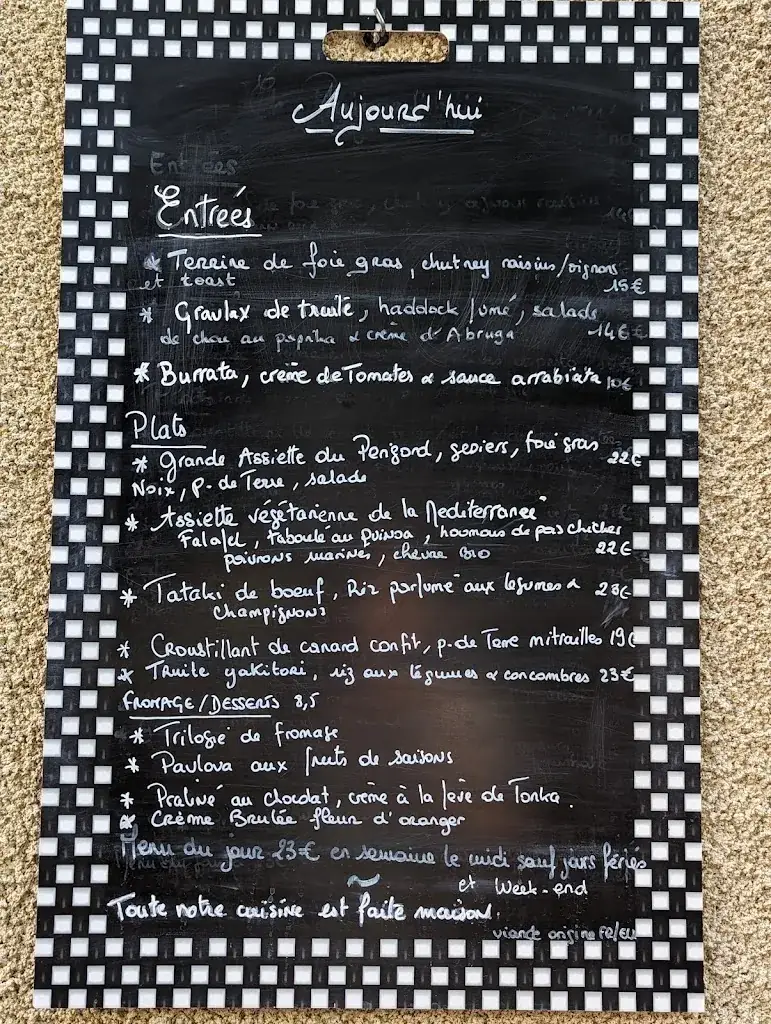 Aujourd'hui
Entrées
Entrées
* Terrine de foie gras, chutney raisins/oignons
et toast 15€
* Gravlax de truite, haddock fumé, salade
de chou au paprika & crème d'Abruga 14€
* Burrata, crème de Tomates & sauce arrabiata 10€
Plats
* Grande Assiette du Perigord, gesiers, foie gras 22€
Noix, p. de Terre, salade
* Assiette végétarienne de la Mediterranée
Falafel, taboulé au quinoa, houmous de pois chiches
poivrons marinés, chèvre BIO 22€
* Tataki de boeuf, Riz parfumé aux légumes &
champignons
* Croustillant de canard confit, p. de Terre mitrailles 19€
* Truite yakitori, riz aux légumes & concombres 23€
FROMAGE/DESSERTS 8,5
* Trilogie de fromage
* Pavlova aux fruits de saisons
* Praliné au chocolat, crème à la fève de Tonka.
* Crème Brulée fleur d'oranger
Menu du jour 23€ en semaine le midi sauf jours fériés
et Week-end
Toute notre cuisine est faite maison.
viande origine FR/EU